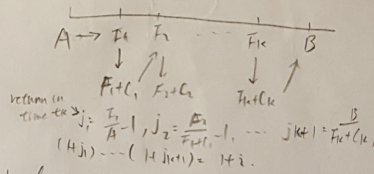 A → F₁ F₂ .... Fₖ B
F₁+C₁ F₂+C₂ Fₖ+Cₖ
return in
time tₖ → j₁ = F₁/A - 1, j₂ = F₂/(F₁+C₁) - 1, ... jₖ+₁ = B/(Fₖ+Cₖ) ,
(1+j₁) ---- (1+jₖ+₁) = 1+i.